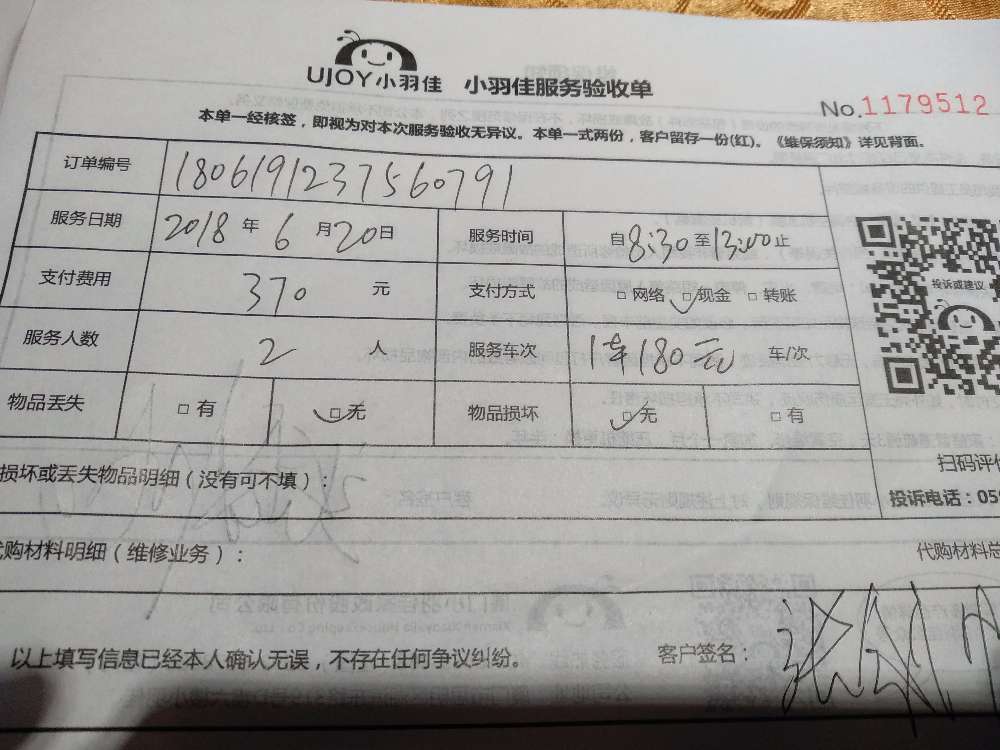 UJOY小羽佳 小羽佳服务验收单
No.1179512
本单一经核签，即视为对本次服务验收无异议。本单一式两份，客户留存一份(红)。《维保须知》详见背面。
订单编号 1806191237560791
服务日期 2018年6月20日 服务时间 自8:30至13:00止
支付费用 370元 支付方式 □网络 □现金 □转账
投诉或建议
服务人数 2人 服务车次 1车180元 车/次
物品丢失 □有 □无 物品损坏 □无 □有
扫码评
损坏或丢失物品明细（没有可不填）：
投诉电话：059
代购材料明细（维修业务）：
代购材料总
以上填写信息已经本人确认无误，不存在任何争议纠纷。 客户签名：